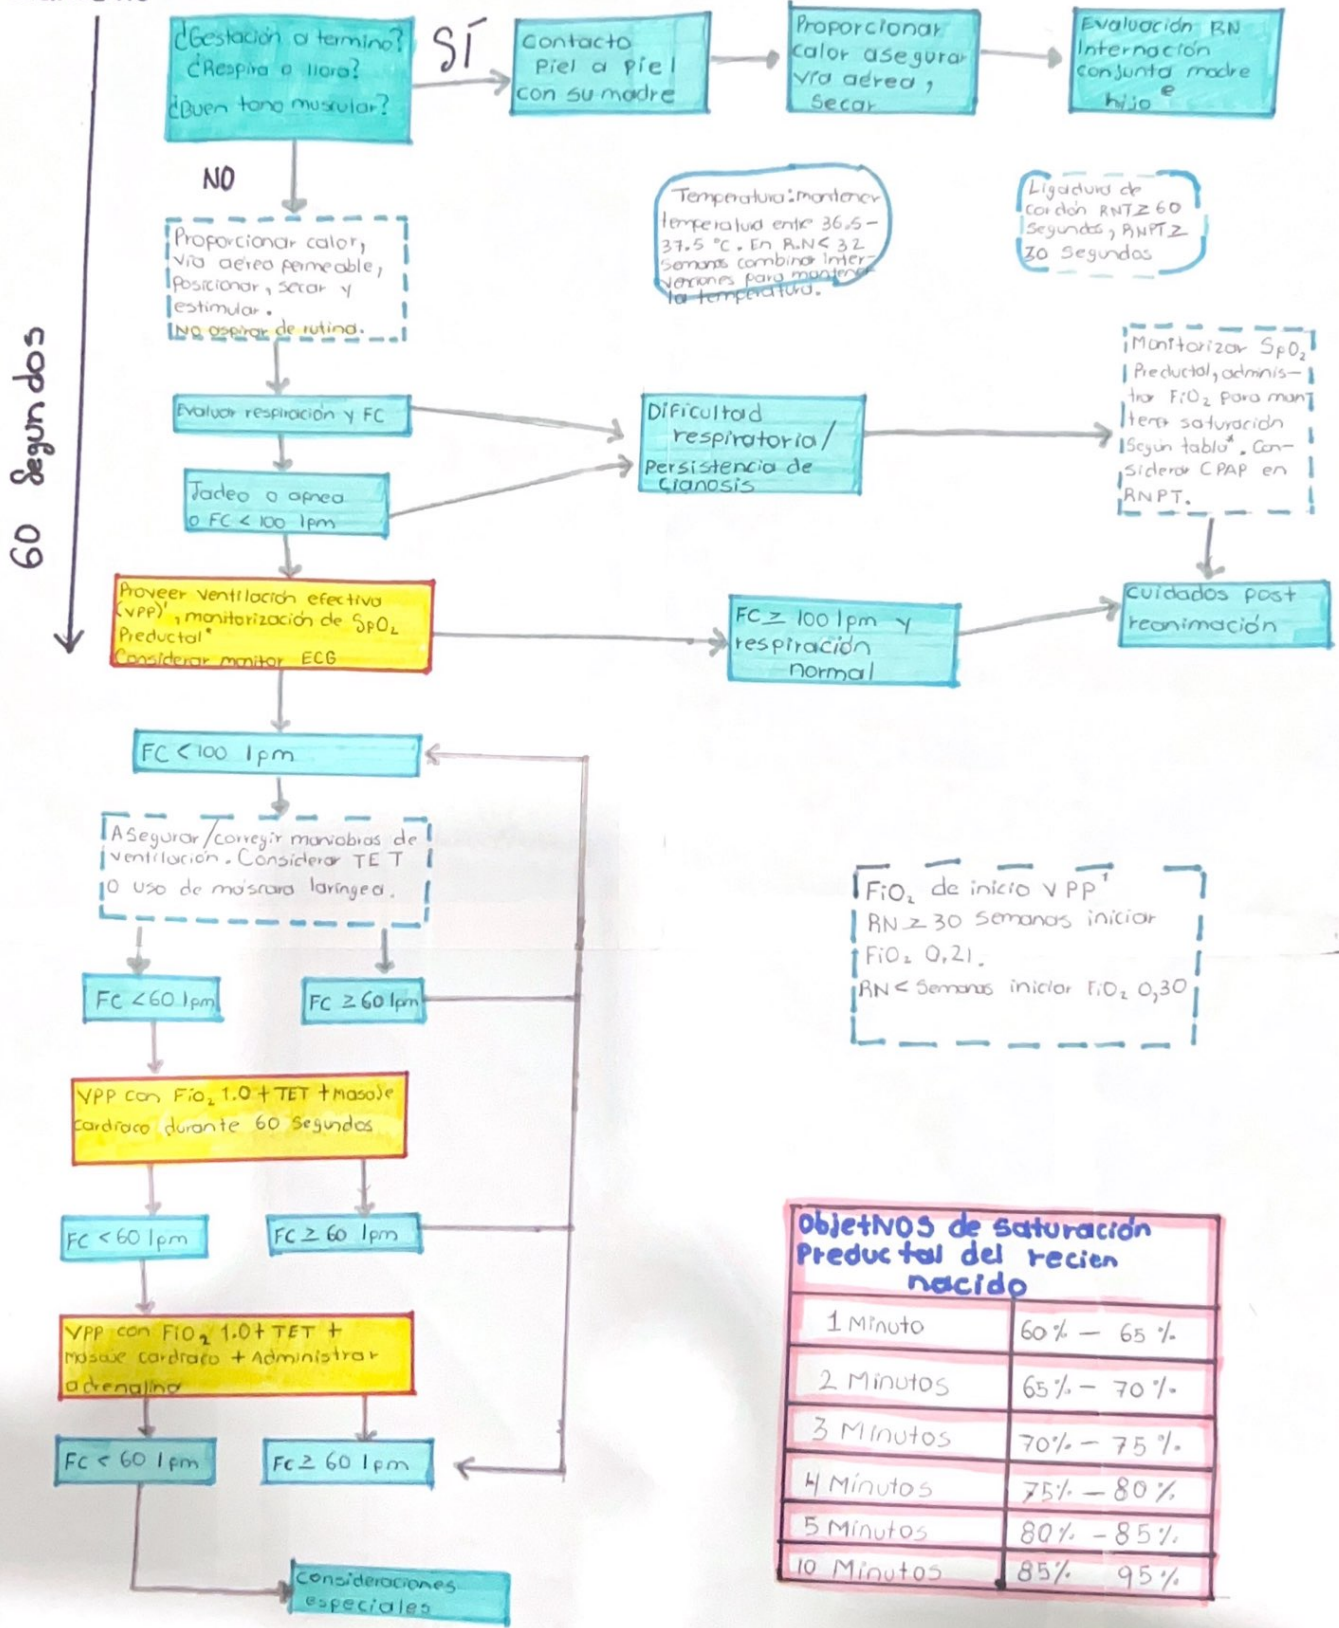 ¿Gestación a termino?
¿Respira o llora?
¿Buen tono muscular?
SÍ
Contacto
Piel a piel
con su madre
Proporcionar
calor asegurar
vía aérea,
Secar
Evaluación RN
Internación
conjunta madre
e
hijo
NO
60 Segundos
Proporcionar calor,
vía aérea permeable,
Posicionar, secar y
estimular.
NO aspirar de rutina.
Temperatura: mantener
temperatura entre 36.5-
37.5 °C. En R.N < 32
Semanas combinar inter-
venciones para mantener
la temperatura.
Ligadura de
cordón RNT ≥ 60
Segundos, RNPT ≥
30 Segundos
Evaluar respiración y FC
Jadeo o apnea
o FC < 100 lpm
Dificultad
respiratoria/
Persistencia de
Cianosis
Monitorizar SpO₂
Preductal, adminis-
trar FiO₂ para man
tener saturación
Según tabla*. Con-
siderar CPAP en
RNPT.
Proveer ventilación efectiva
(VPP)¹, monitorización de SpO₂
Preductal*
Considerar monitor ECG
FC ≥ 100 lpm y
respiración
normal
Cuidados post
reanimación
FC < 100 lpm
Asegurar/corregir maniobras de
ventilación. Considerar TET
o uso de máscara laríngea.
FC < 60 lpm
FC ≥ 60 lpm
FiO₂ de inicio VPP¹
RN ≥ 30 Semanas iniciar
FiO₂ 0,21.
RN < Semanas iniciar FiO₂ 0,30
VPP con FiO₂ 1.0 + TET + Masaje
cardíaco durante 60 Segundos
FC < 60 lpm
FC ≥ 60 lpm
VPP con FiO₂ 1.0 + TET +
Masaje cardíaco + Administrar
adrenalina
FC < 60 lpm
FC ≥ 60 lpm
Consideraciones
especiales
Objetivos de saturación
Preductal del recien
nacido
1 Minuto 60% - 65%
2 Minutos 65% - 70%
3 Minutos 70% - 75%
4 Minutos 75% - 80%
5 Minutos 80% - 85%
10 Minutos 85% 95%